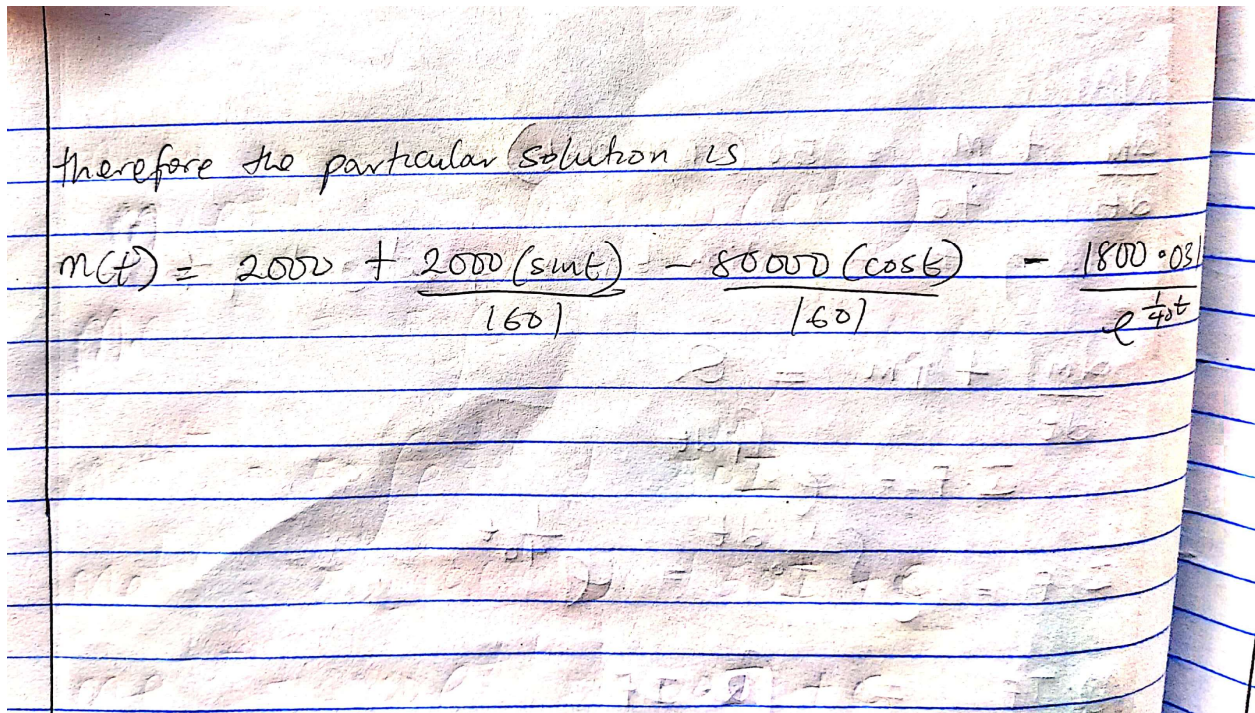 therefore the particular solution is
m(t) = 2000 + 2000 (sint) / 1601 - 80000 (cost) / 1601 - 1800.031 / e^{1/40 t}